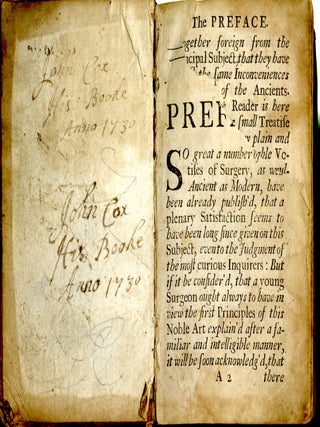 John Cox
His Booke
Anno 1730
John Cox
His Booke
Anno 1730
The PREFACE.
ogether foreign from the
icipal Subject, that they have
the same Inconveniences
of the Ancients.
Reader is here
small Treatise
plain and
PREF
SO great a number able Vo-
tiles of Surgery, as well
Ancient as Modern, have
been already publish'd, that a
plenary Satisfaction seems to
have been long since given on this
Subject, even to the Judgment of
the most curious Inquirers: But
if it be consider'd, that a young
Surgeon ought always to have in
view the first Principles of this
Noble Art explain'd after a fa-
miliar and intelligible manner,
it will be soon acknowledg'd, that
A 2 there